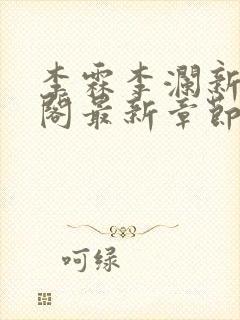 李霖李澜新
阁最新章节
呵绿